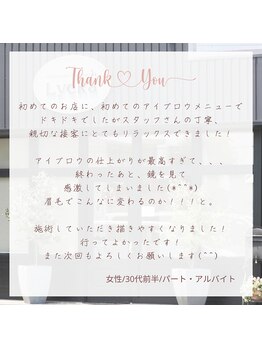 Thank You
初めてのお店に、初めてのアイブロウメニューで
ドキドキでしたがスタッフさんの丁寧、
親切な接客にとてもリラックスできました！
アイブロウの仕上がりが最高すぎて、、、
終わったあと、鏡を見て
感激してしまいました(*^^*)
眉毛でこんなに変わるのか！！！と。
施術していただき描きやすくなりました！
行ってよかったです！
また次回もよろしくお願いします(^^)
女性/30代前半/パート・アルバイト